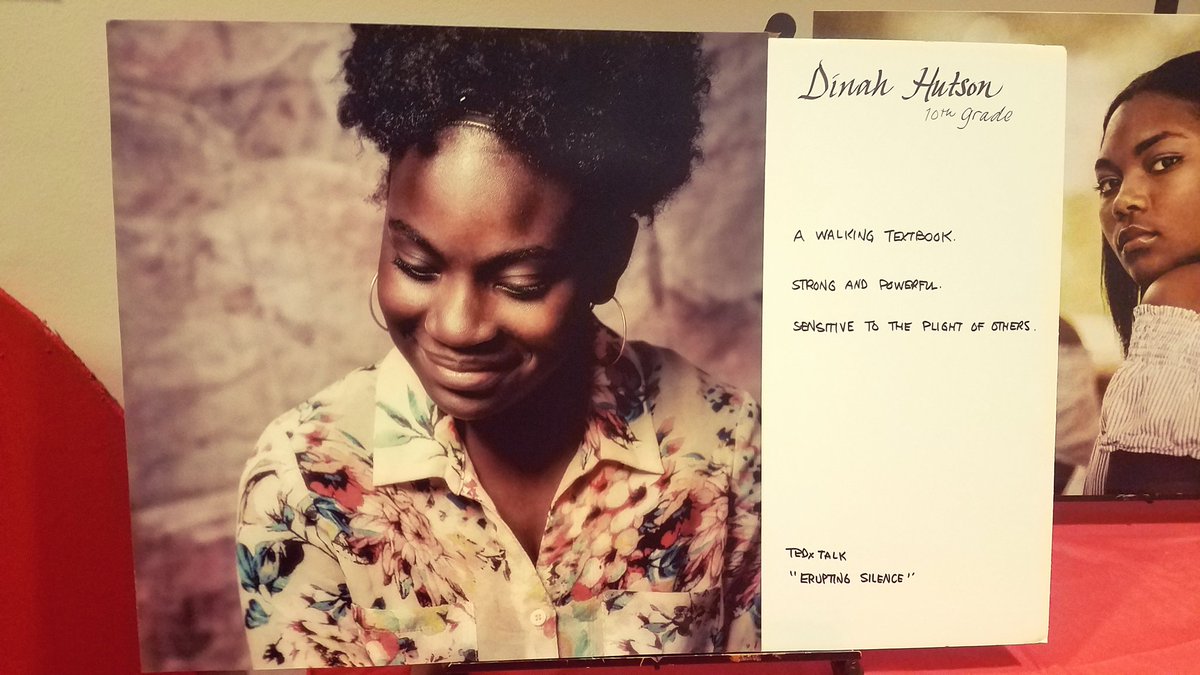 Dinah Hutson
10th grade
A WALKING TEXTBOOK.
STRONG AND POWERFUL.
SENSITIVE TO THE PLIGHT OF OTHERS.
TEDx TALK
"ERUPTING SILENCE"